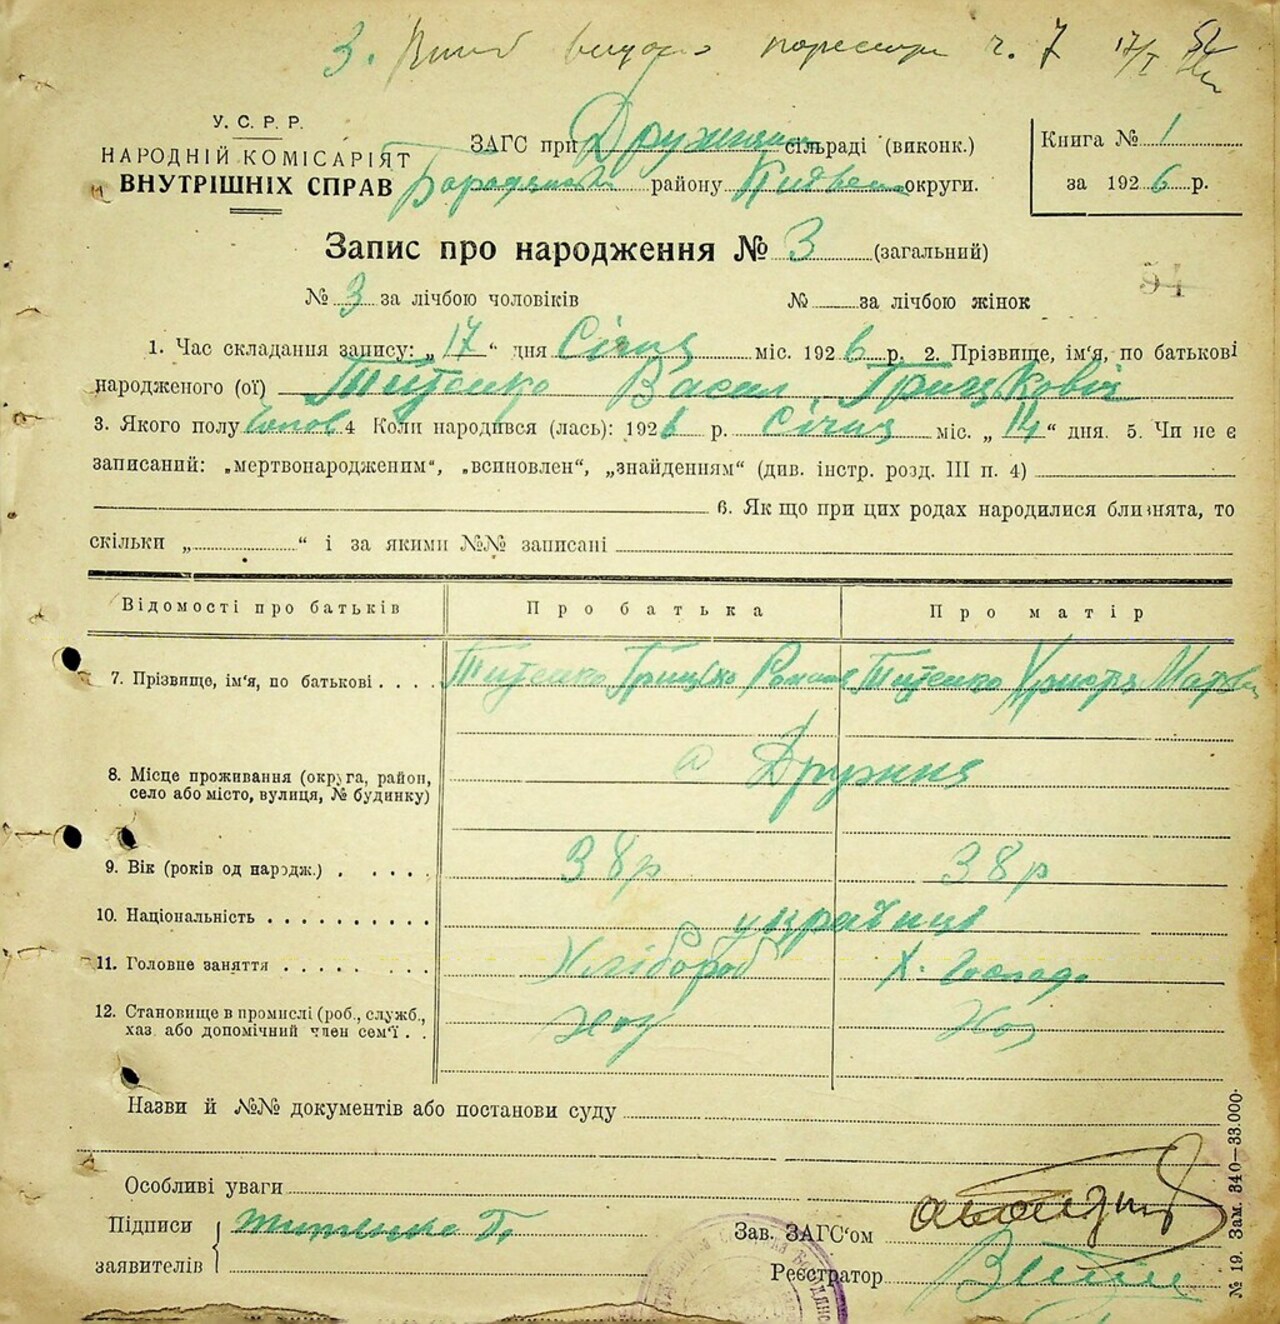 3. видано ч. 7 17/I 52
У. С. Р. Р.
НАРОДНІЙ КОМІСАРІЯТ
ВНУТРІШНІХ СПРАВ
ЗАГС при Дружнян сільраді (виконк.)
Бородянськ району Київськ округи.
Книга № 1
за 1926 р.
Запис про народження № 3 (загальний)
№ 3 за лічбою чоловіків № за лічбою жінок
1. Час складання запису: „17“ дня Січня міс. 1926 р. 2. Прізвище, ім'я, по батькові
народженого (ої) Титенко Васил Грицькович
3. Якого полу чолов 4 Коли народився (лась): 1926 р. Січня міс. „14“ дня. 5. Чи не є
записаний: „мертвонародженим“, „всиновлен“, „знайденням“ (див. інстр. розд. III п. 4)
6. Як що при цих родах народилися близнята, то
скільки „ “ і за якими №№ записані
Відомості про батьків Про батька Про матір
7. Прізвище, ім'я, по батькові . . . . Титенко Грицько Роман Титенко Христя
8. Місце проживання (округа, район,
село або місто, вулиця, № будинку)
с Дружня
9. Вік (років од народж.) . . . . . 38 р 38 р
10. Національність . . . . . . . . . . українці
11. Головне заняття . . . . . . . . Хлібороб Х. Господ
12. Становище в промислі (роб., служб.,
хаз. або допомічний член сем'ї . .
Хоз Хоз
Назви й №№ документів або постанови суду
Особливі уваги
Підписи
заявителів
Титенко Г.
Зав. ЗАГС'ом
Реєстратор
№ 19. Зам. 340—33.000